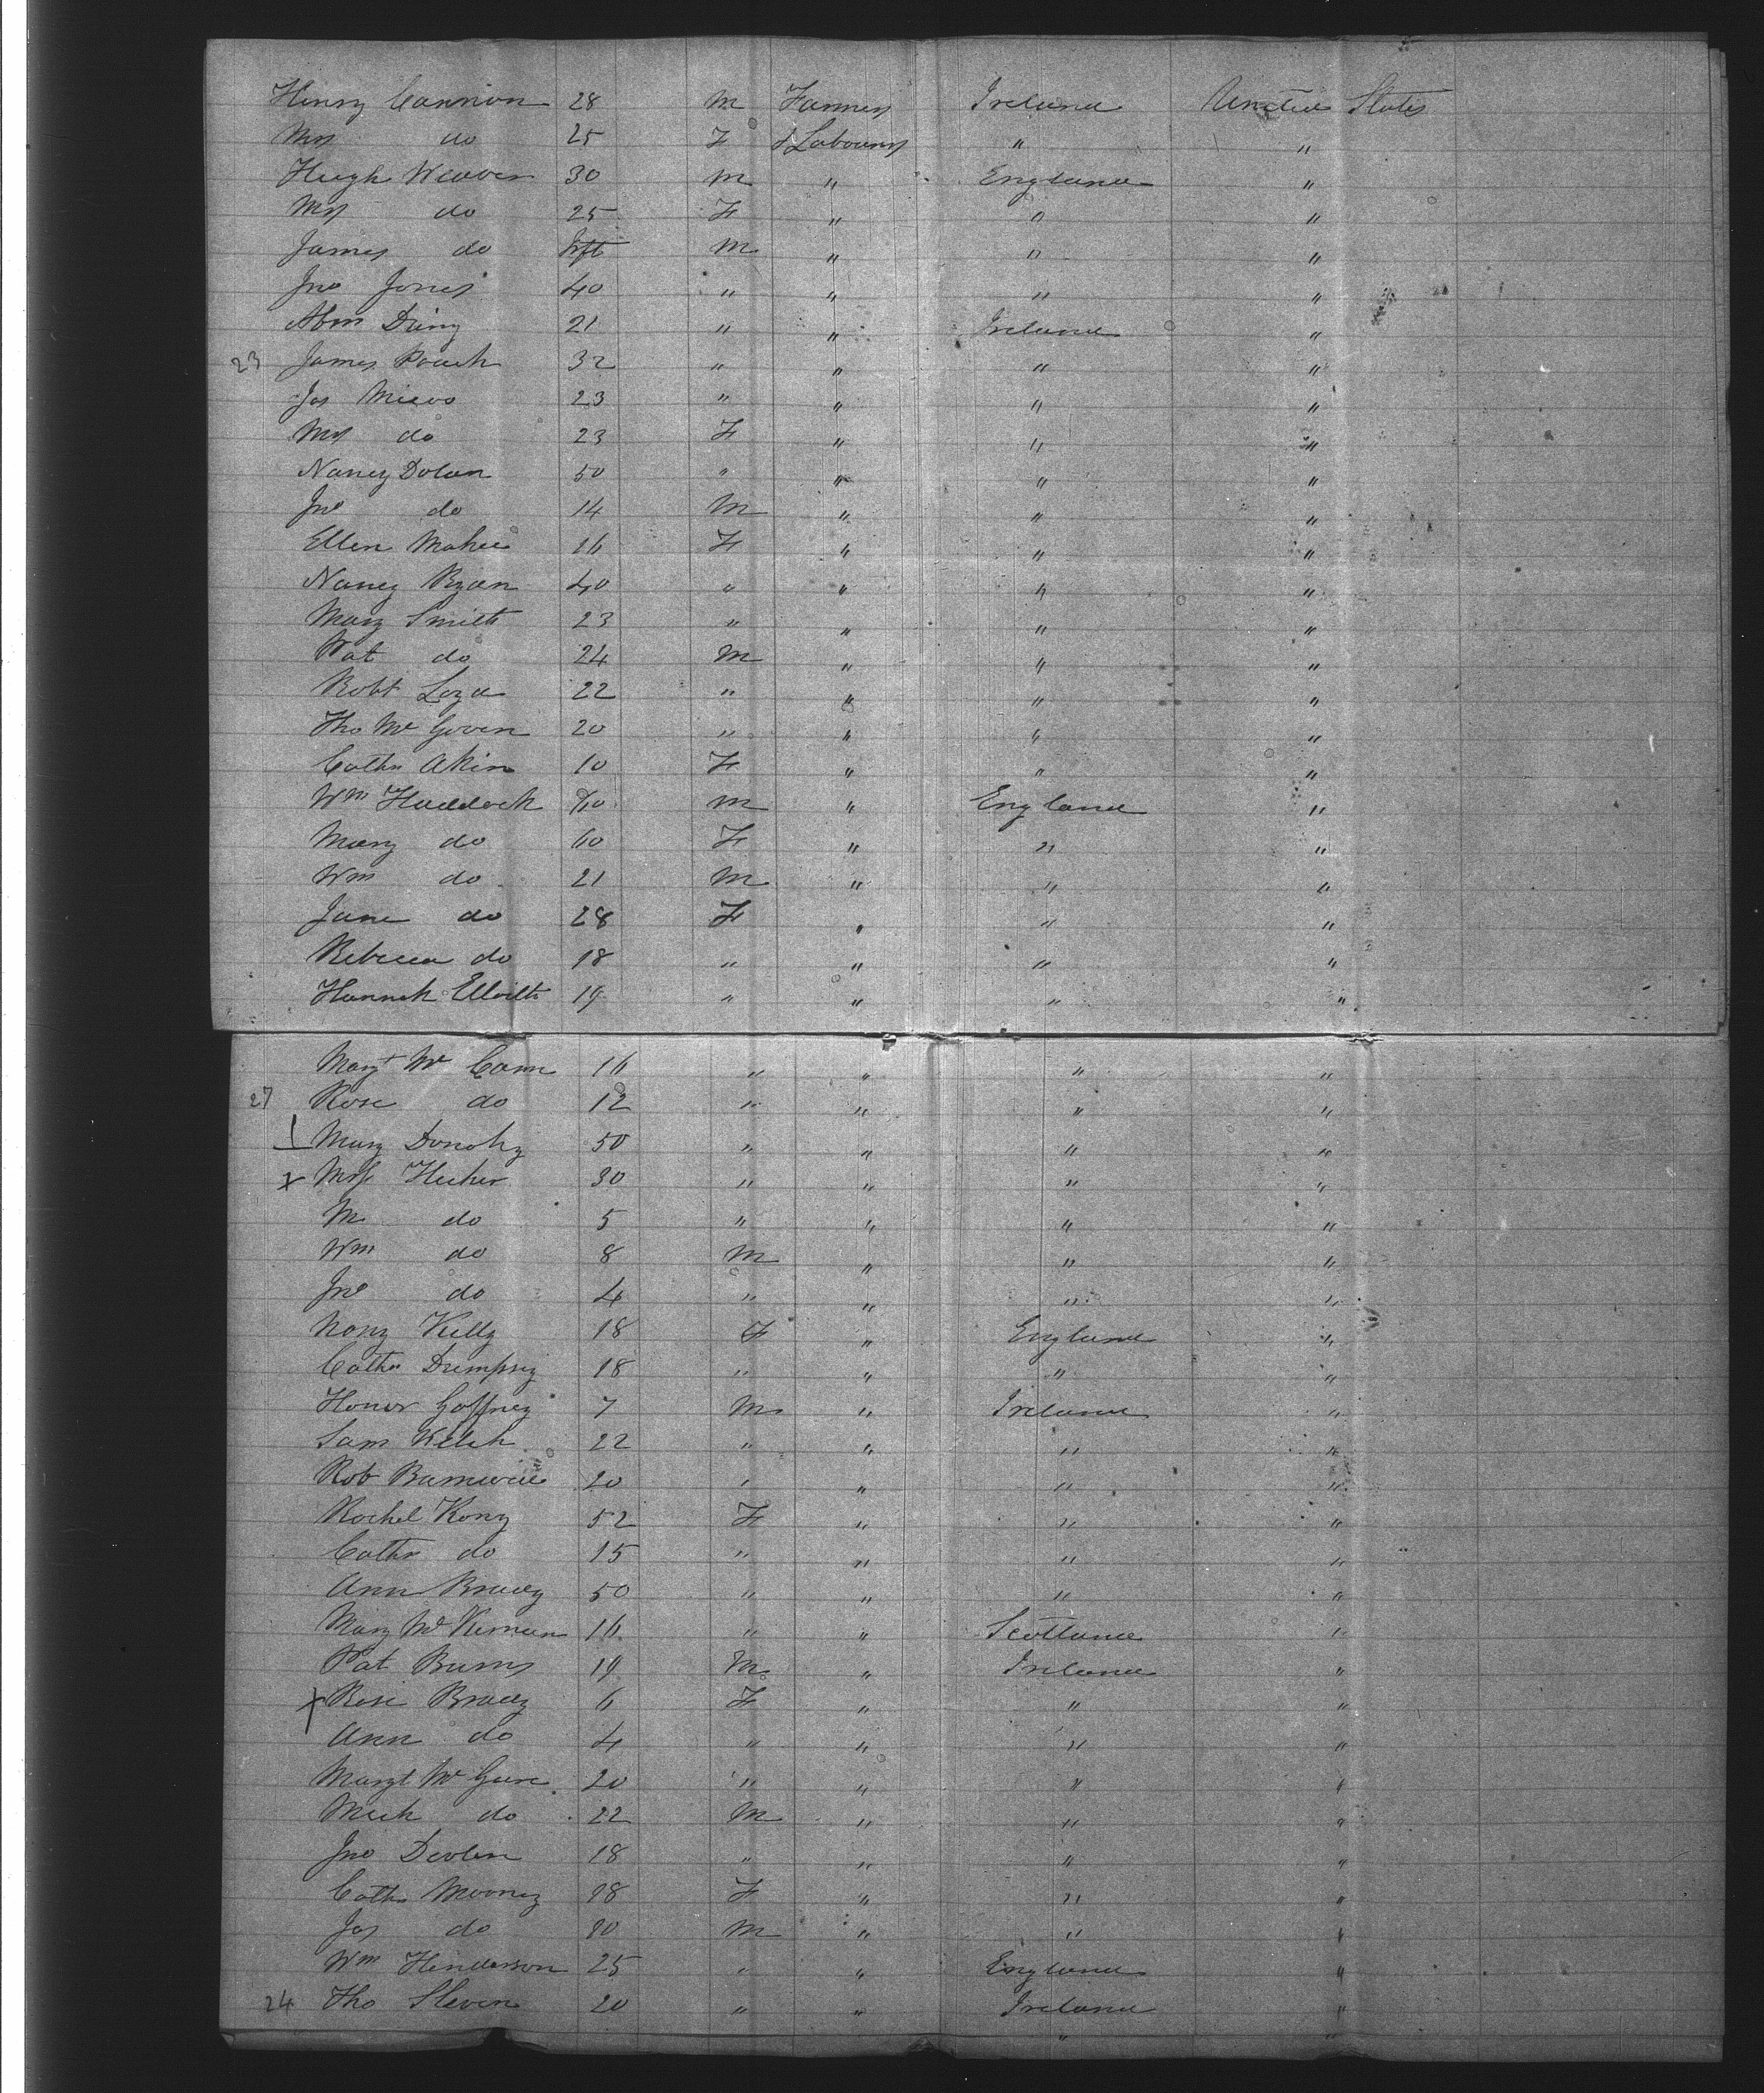 Henry Cannon 28 M Farmers Ireland United States
Mrs do 25 F & Labourers " "
Hugh Weaver 30 M " England "
Mrs do 25 F " " "
James do Inft M " " "
Jno Jones 40 " " " "
Abm 21 " " Ireland "
23 James Roach 32 " " " "
Jos 23 " " " "
Mrs do 23 F " " "
Nancy Dolan 50 " " " "
Jno do 14 M " " "
Ellen Maher 16 F " " "
Nancy Ryan 40 " " " "
Mary Smith 23 " " " "
Pat do 24 M " " "
Robt 22 " " " "
Tho Mc Goven 20 " " " "
Cathn Akin 10 F " " "
Wm Haddock 60 M " England "
Mary do 60 F " " "
Wm do 21 M " " "
Jane do 28 F " " "
Rebecca do 18 " " " "
Hannah Elloitt 19 " " " "
Margt Mc Cann 16 " " " "
27 Rose do 12 " " " "
Mary Donohy 50 " " " "
x Mrs 30 " " " "
M do 5 " " " "
Wm do 8 M " " "
Jno do 4 " " " "
Nany Kelly 18 F " England "
Cathn Dempsy 18 " " " "
Honor Gaffney 7 M " Ireland "
Sam Welsh 22 " " " "
Rob 20 " " " "
Rachel Kong 52 F " " "
Cathn do 15 " " " "
Ann Brady 50 " " " "
Mary Mc Kernan 16 " " Scotland "
Pat Burns 19 M " Ireland "
x Rose Brady 6 F " " "
Ann do 4 " " " "
Margt Mc Gure 20 " " " "
Mich do 22 M " " "
Jno Devlin 18 " " " "
Cathn Mooney 18 F " " "
Jos do 10 M " " "
Wm Henderson 25 " " England "
24 Tho Sleven 20 " " Ireland "
" "